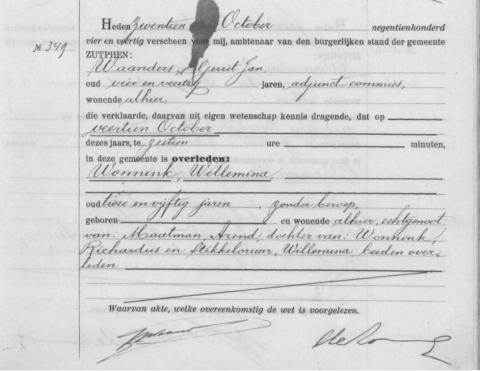 Heden zeventien October negentienhonderd
No 349
vier en veertig verscheen voor mij, ambtenaar van den burgerlijken stand der gemeente
ZUTPHEN:
Waanders, Gerrit Jan,
oud vier en veertig jaren, adjunct-commies,
wonende alhier,
die verklaarde, daarvan uit eigen wetenschap kennis dragende, dat op
veertien October
dezes jaars, te zestien ure minuten,
in deze gemeente is overleden:
Wonnink, Willemina
oud twee en vijftig jaren, zonder beroep,
geboren en wonende alhier, echtgenoot
van: Maatman, Arend, dochter van: Wonnink,
Richardus en: Stikkelorum, Willemina, beiden over-
leden.
Waarvan akte, welke overeenkomstig de wet is voorgelezen.